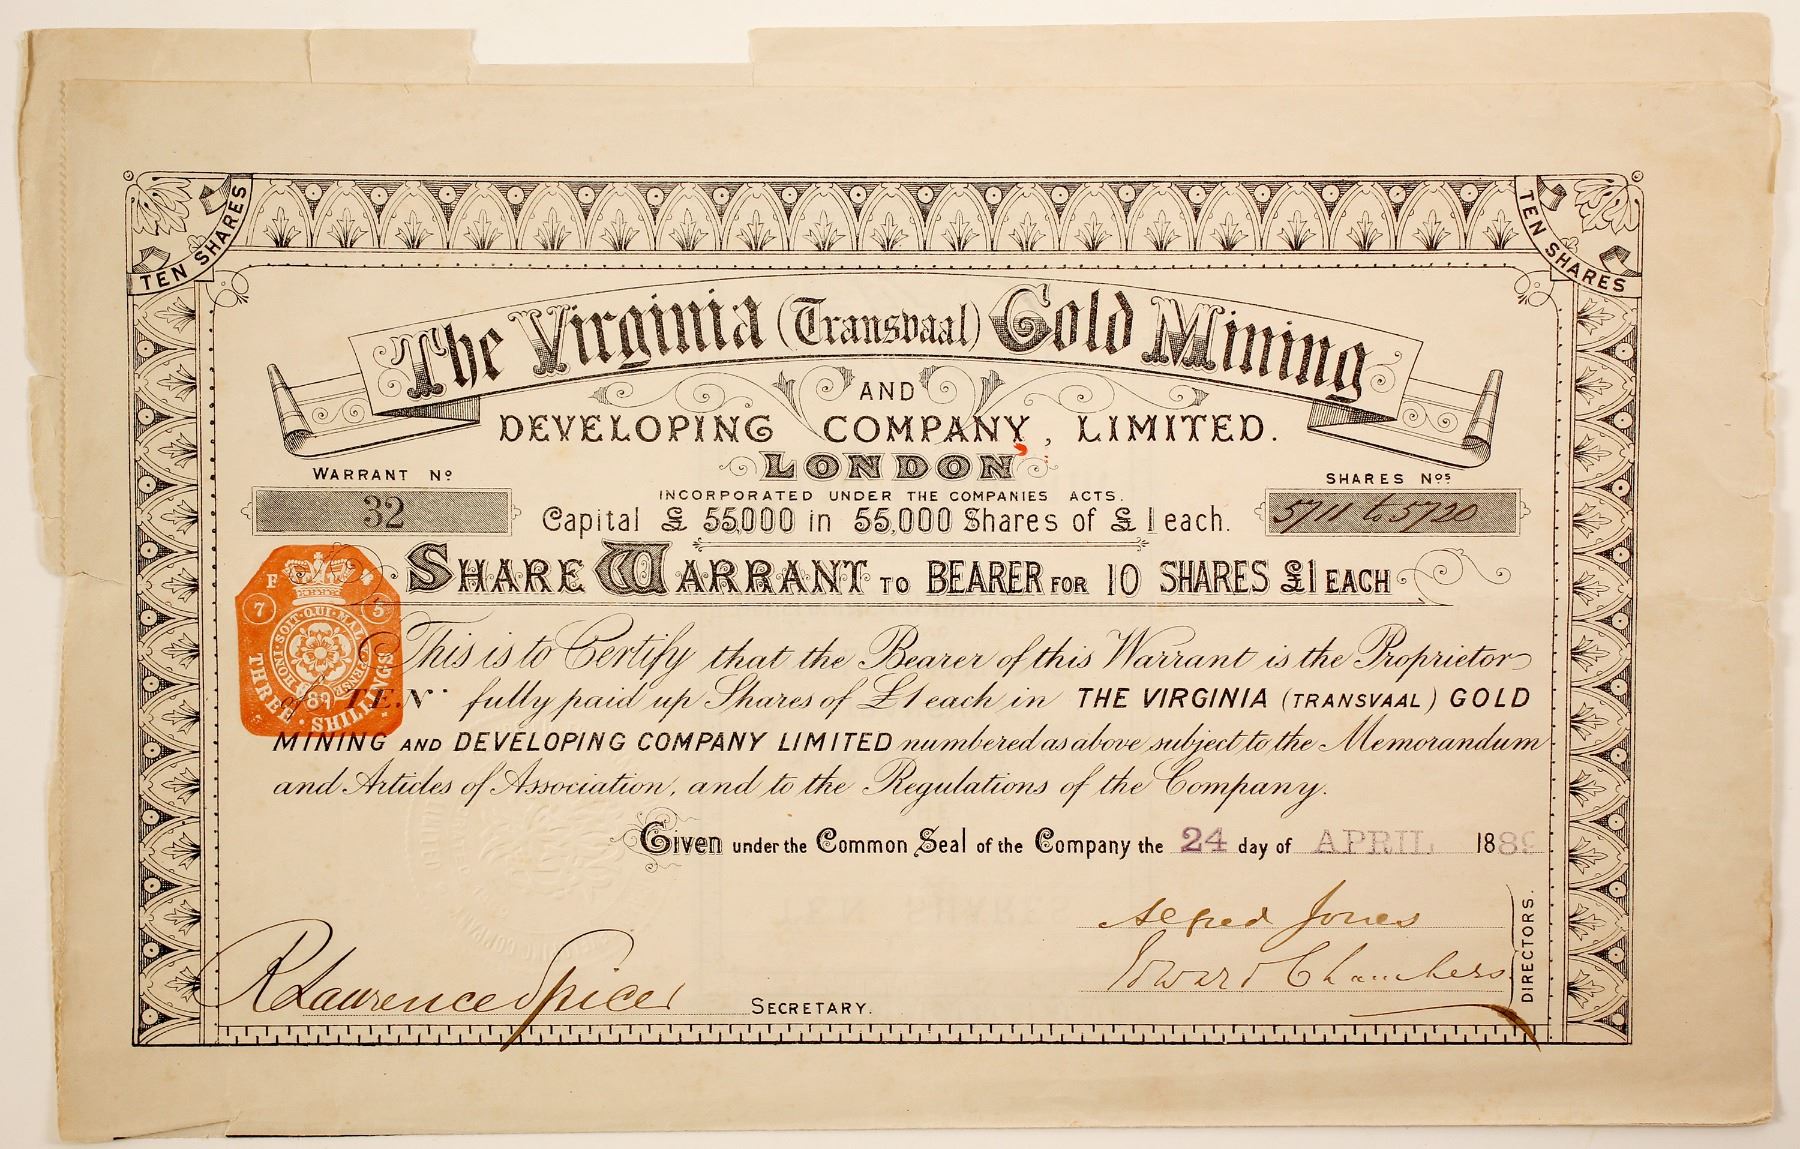 TEN SHARES
TEN SHARES
The Virginia (Transvaal) Gold Mining
AND
DEVELOPING COMPANY, LIMITED.
LONDON
INCORPORATED UNDER THE COMPANIES ACTS.
WARRANT No
32
SHARES Nos
5711 to 5720
Capital £ 55,000 in 55,000 Shares of £ 1 each.
SHARE WARRANT TO BEARER FOR 10 SHARES £1 EACH
F
7 5
HONI·SOIT·QUI·MAL
89
THREE·SHILLINGS
This is to Certify that the Bearer of this Warrant is the Proprietor
of TEN fully paid up Shares of £1 each in THE VIRGINIA (TRANSVAAL) GOLD
MINING AND DEVELOPING COMPANY LIMITED numbered as above subject to the Memorandum
and Articles of Association, and to the Regulations of the Company.
Given under the Common Seal of the Company the 24 day of APRIL 1889
Alfred Jones
Edward Chambers
DIRECTORS.
R Lawrence Spicer SECRETARY.